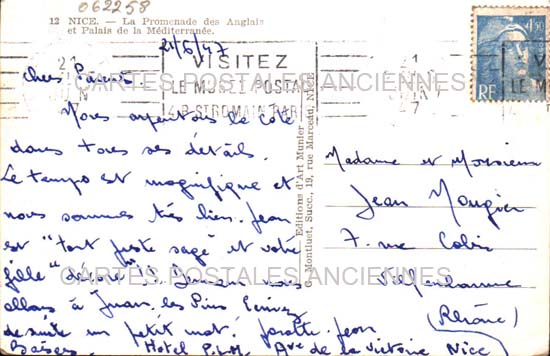 062258
12 NICE. — La Promenade des Anglais
et Palais de la Méditerranée.
21/6/47
VISITEZ
LE MUSÉE POSTAL
4 R. ST ROMAIN PARIS
RF
4.50
CARTES POSTALES ANCIENNES
Chers Parents
Nous arpentons la côte
dans tous ses détails.
Le temps est magnifique et
nous sommes très bien. Jean
est "tout juste sage et votre
fille" Demain nous
allons à Juan les Pins Ecrivez
de suite un petit mot. Jean
Baisers Hotel P.L.M. Ave de la victoire Nice
Editions d'Art Munier
G. Montluet, Succ., 19, rue Marceau, NICE
Madame et Monsieur
Jean Mougin
7. rue Colin
Villeurbanne
(Rhône)
CARTES POSTALES ANCIENNES